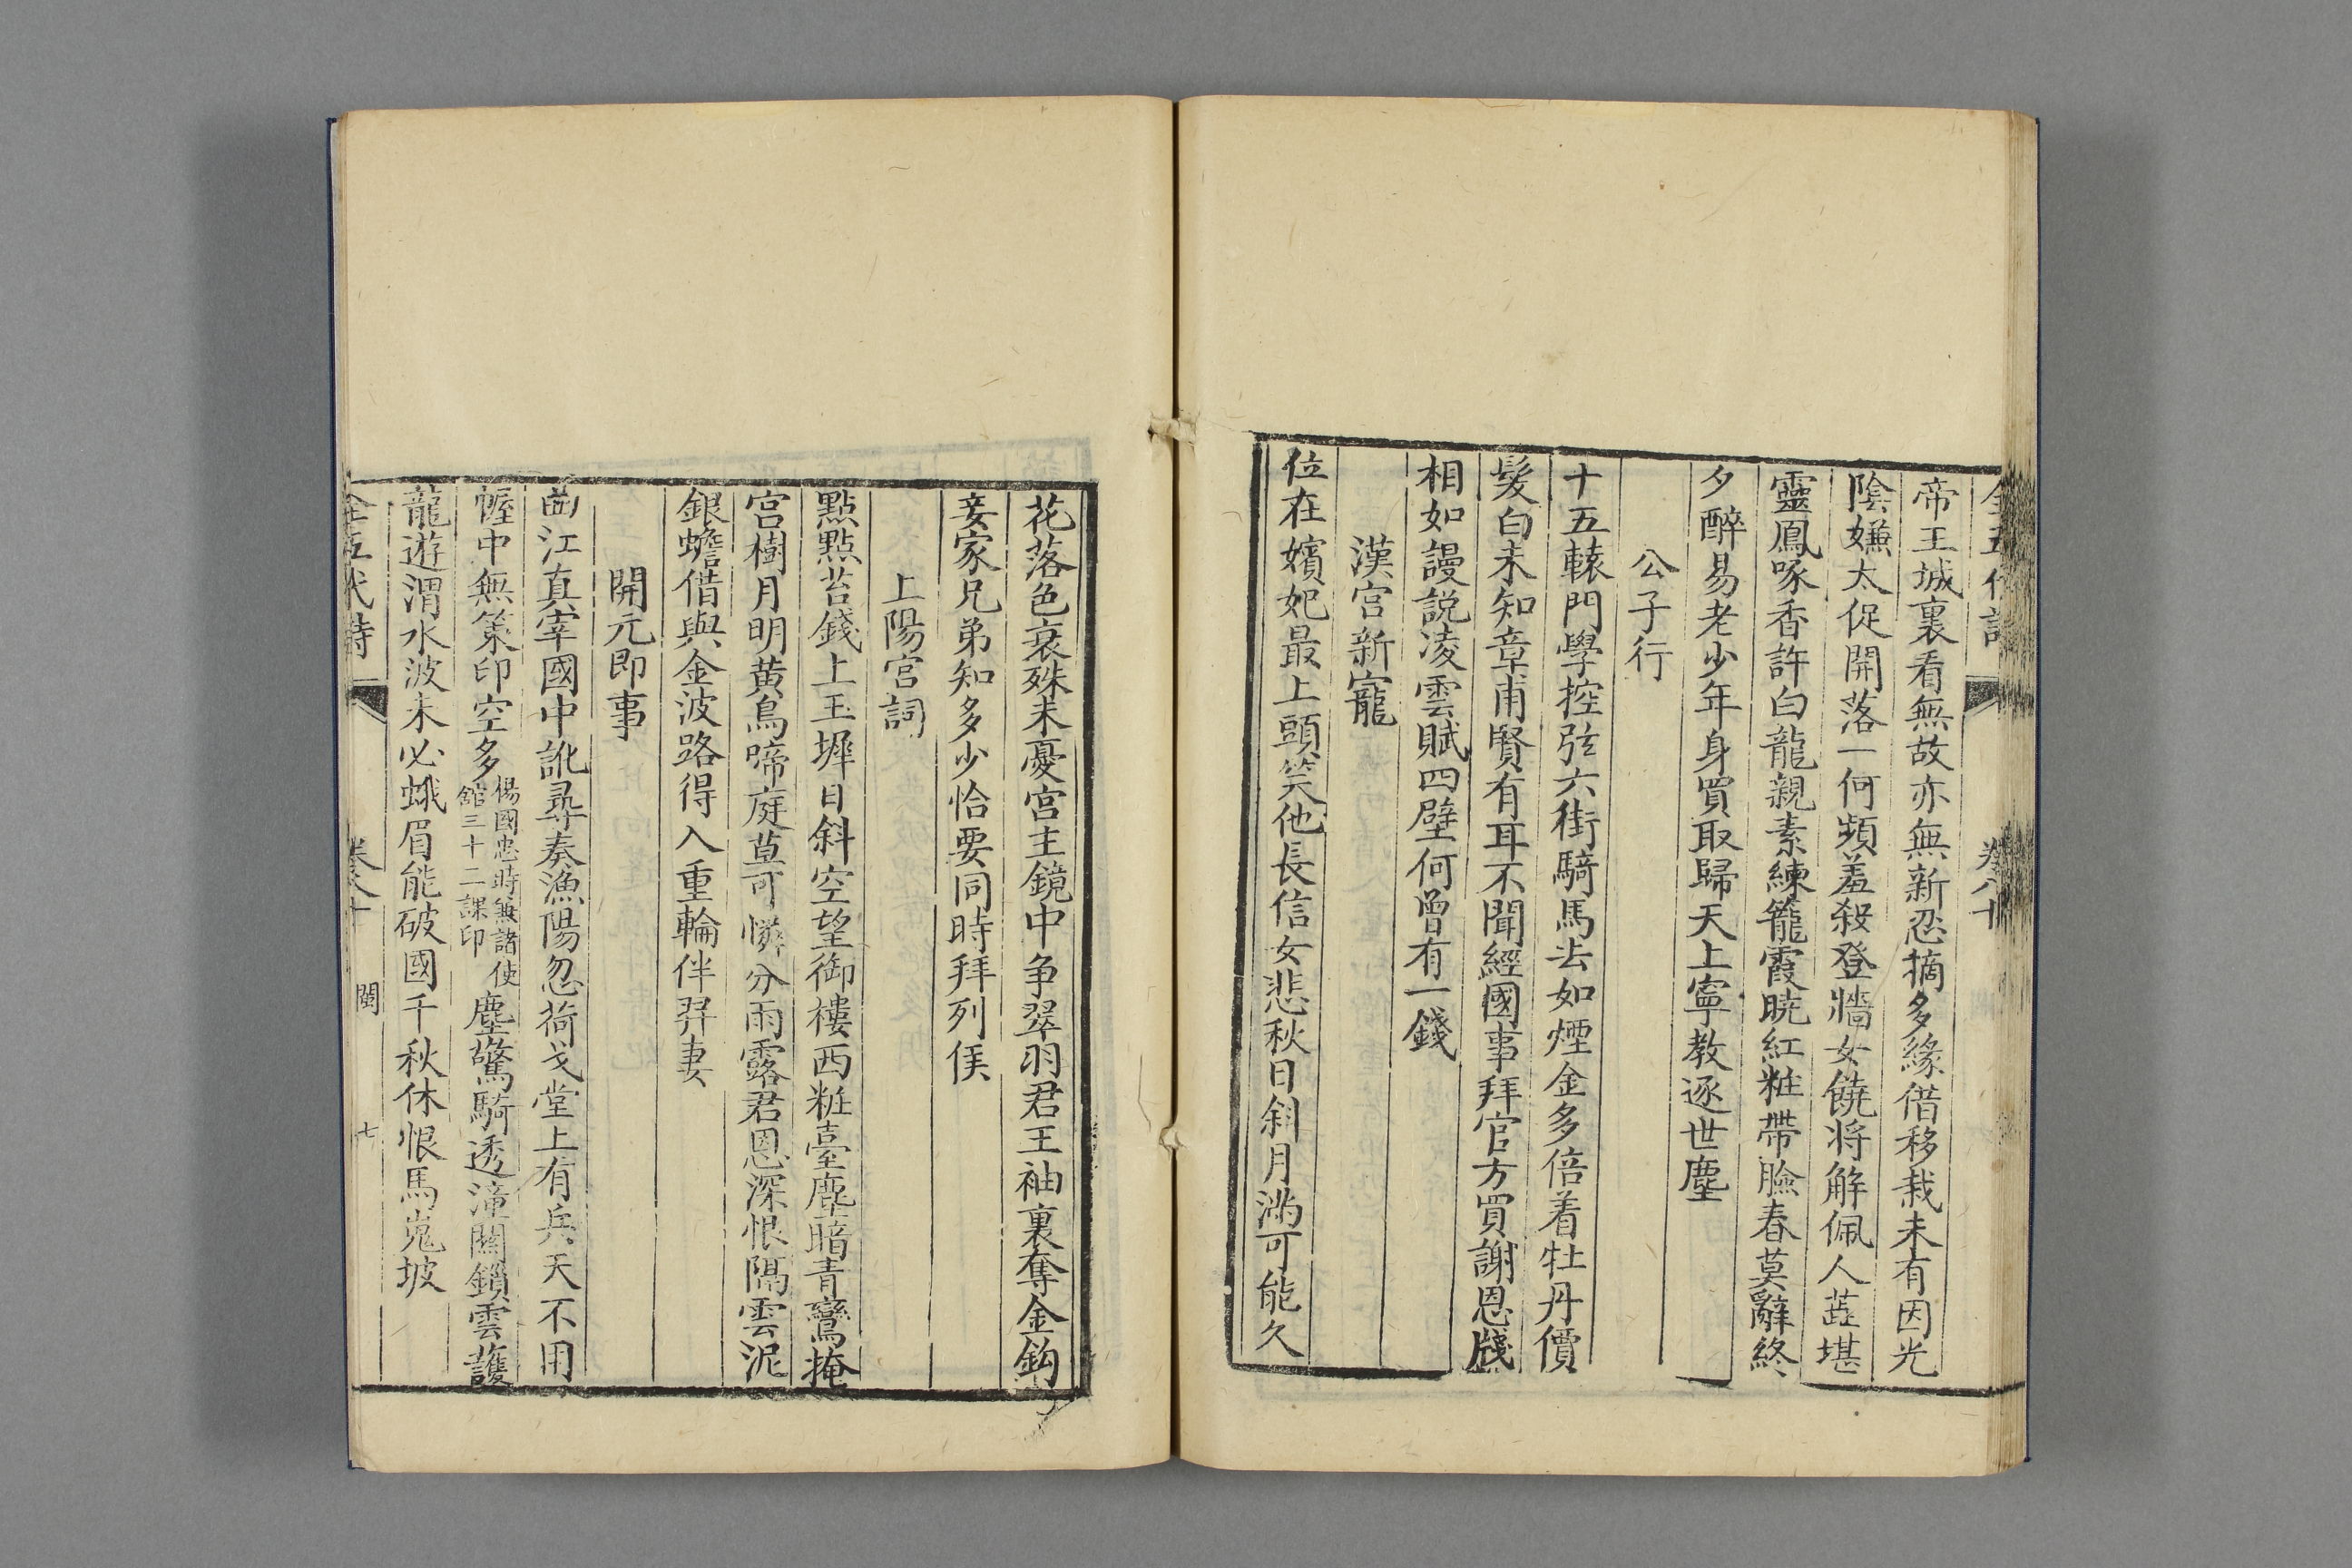 全五代詩
卷八十
帝王城裏看無故亦無新忍摘多緣借移栽未有因光
陰嫌太促開落一何頻羞殺登牆女饒将解佩人蘂堪
靈鳳啄香許白龍親素練籠霞曉紅粧帶臉春莫辭終
夕醉易老少年身買取歸天上寧教逐世塵
公子行
十五轅門學控弦六街騎馬去如煙金多倍着牡丹價
髮白未知章甫賢有耳不聞經國事拜官方買謝恩牋
相如謾説凌雲賦四壁何曾有一錢
漢宫新寵
位在嬪妃最上頭笑他長信女悲秋日斜月滿可能久
花落色衰殊未憂宫主鏡中争翠羽君王袖裏奪金鈎
妾家兄弟知多少恰要同時拜列侯
上陽宫詞
點點苔錢上玉墀日斜空望御樓西粧臺塵暗青鸞掩
宫樹月明黄鳥啼庭草可憐分雨露君恩深恨隔雲泥
銀蟾借與金波路得入重輪伴羿妻
開元即事
曲江真宰國中訛尋奏漁陽忽荷戈堂上有兵天不用
幄中無策印空多楊國忠時兼諸使館三十二課印塵驚騎透潼關鎖雲護
龍遊渭水波未必蛾眉能破國千秋休恨馬嵬坡
全五代詩
卷八十
閩
七